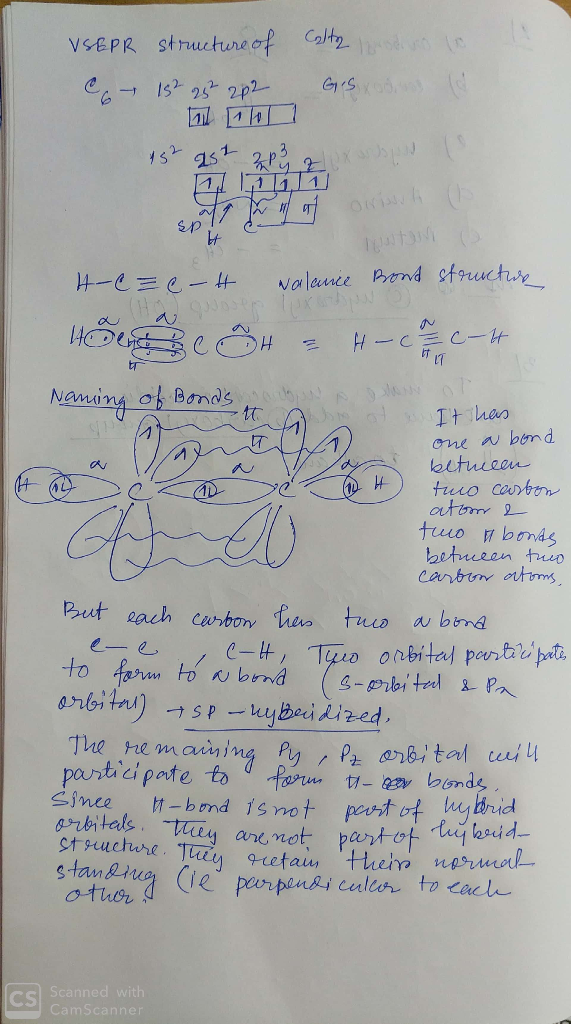 VSEPR structure of C2H2
C6 → 1s² 2s² 2p² G.S
1L 1 1
1s² 2s1 2p3
x y z
1 1 1 1
SP σ σ π π
H C
H-C≡C-H Valance Bond structure
σ σ σ
H C C H ≡ H-C≡C-H
π π π σ π
Naming of Bonds
π
1 1
π
1 1
σ σ σ
H 1L C 1L C 1L H
It has
one σ bond
between
two carbon
atom &
two π bonds
between two
carbon atoms.
But each carbon has two σ bond
C-C, C-H, Two orbital participates
to form to σ bond (S-orbital & Px
orbital) → SP-hybridized.
The remaining Py, Pz orbital will
participate to form π- bonds.
Since π-bond is not part of hybrid
orbitals. They are not part of hybrid-
structure. They retain their normal
standing (ie parpendicular to each
other.
CS Scanned with
CamScanner